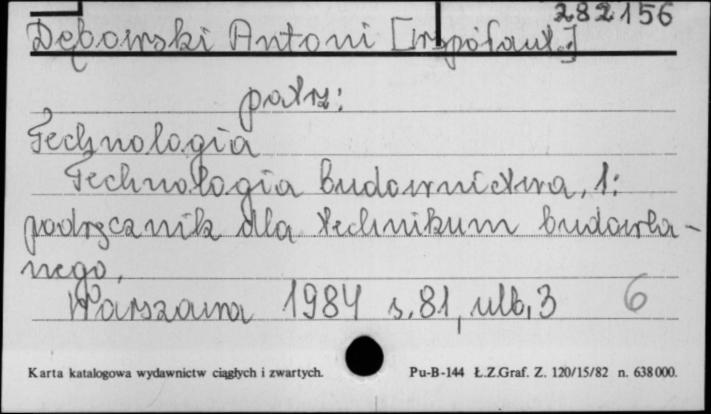 282156
Dębowski Antoni [współaut.]
patrz:
Technologia
Technologia budownictwa, 1:
podręcznik dla technikum budowla-
nego,
Warszawa 1984 s. 81, nlb. 3 6
Karta katalogowa wydawnictw ciągłych i zwartych. Pu-B-144 Ł.Z.Graf. Z. 120/15/82 n. 638000.